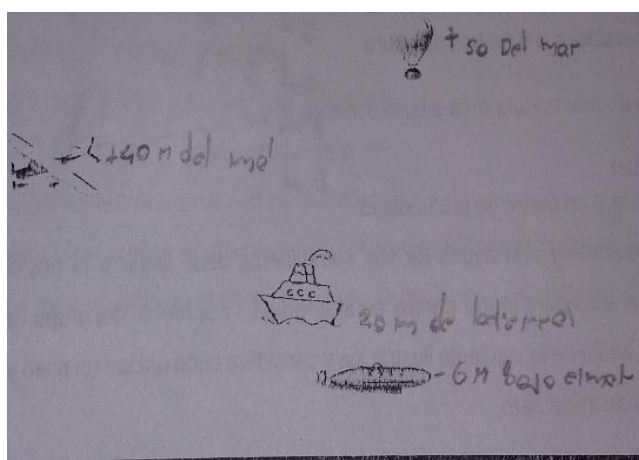 + 50 Del mar
+40 M del
20 m de
- 6 M Bajo el mar